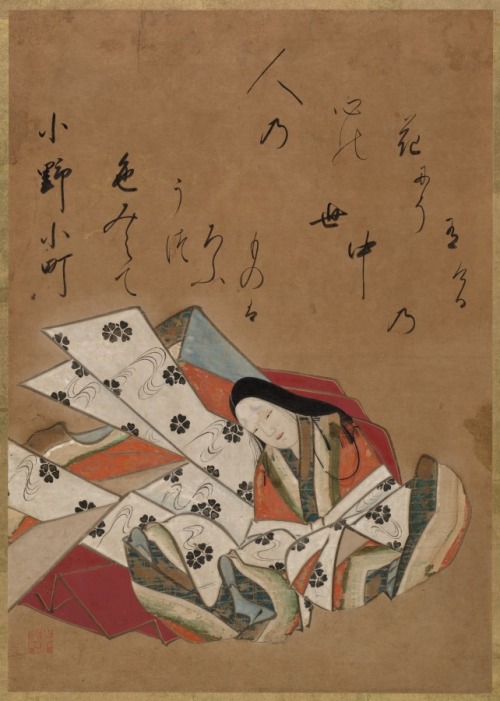 小野小町
色みえて
うつ
ろふ
ものハ
世
中
乃
人乃
心能
花にそ
有ける